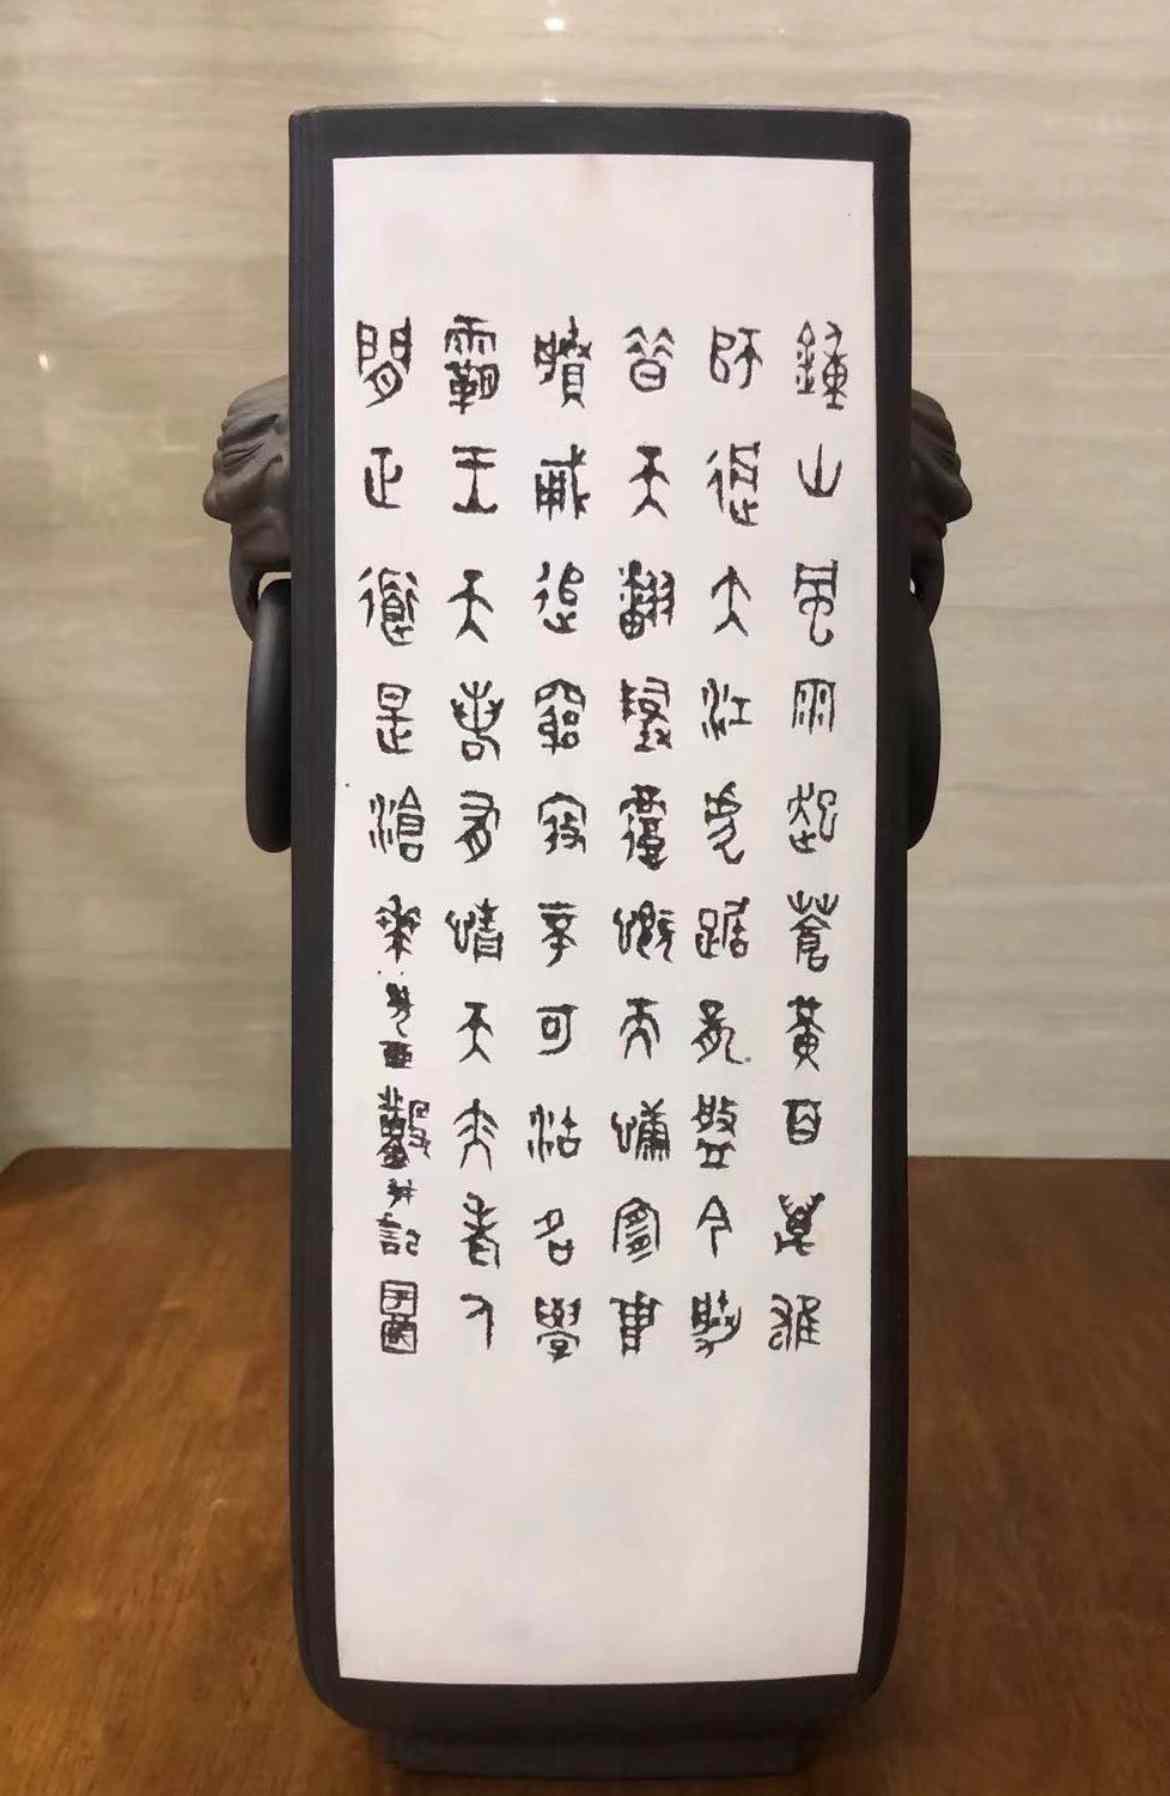 鍾山風雨起蒼黃百萬雄
師過大江虎踞龍盤今勝
昔天翻地覆慨而慷宜將
賸勇追窮寇不可沽名學
霸王天若有情天亦老人
間正道是滄桑 癸酉 并記